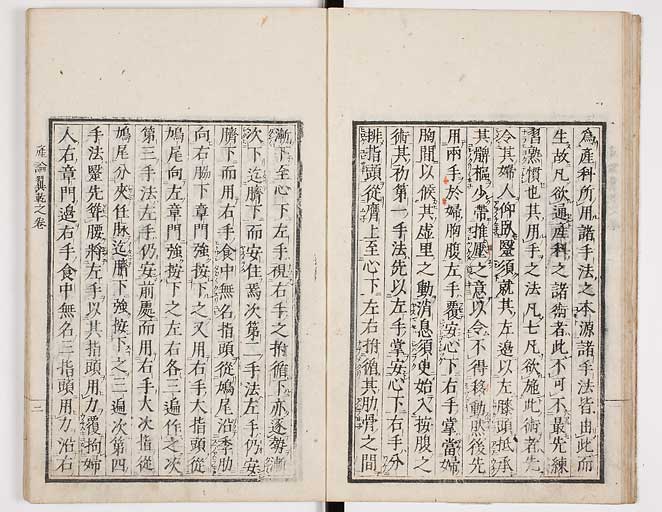 為產科所用諸手法之本源諸手法皆由此而
生故凡欲通產科之諸術者此不可不最先練
習熟慣也其用手之法凡七凡欲施此術者先
令其婦人仰臥毉須就其左邊以左膝頭抵承
其髀樞少帶推壓之意以令不得移動然後先
用兩手於婦胸腹左手覆安心下右手掌當婦
胸間以候其虛里之動消息須臾始入按腹之
術其初第一手法先以左手掌安心下右手分
排指頭從臍上至心下左右拊循其肋骨之間
漸下至心下左手視右手之拊循下亦逐每漸
次下迄臍下而安住焉次第二手法左手仍安
臍下而用右手食中無名指頭從鳩尾沿季肋
向右腸下章門強按下之又用右手大指頭從
鳩尾向左章門強按下之左右各三遍作之次
第三手法左手仍安前處而用右手大次指從
鳩尾分夾任脉迄臍下強按下之三遍次第四
手法毉先聳腰將左手以其指頭用力覆拘婦
人右章門邊右手食中無名三指頭用力沿右
產論翼乾之卷
二